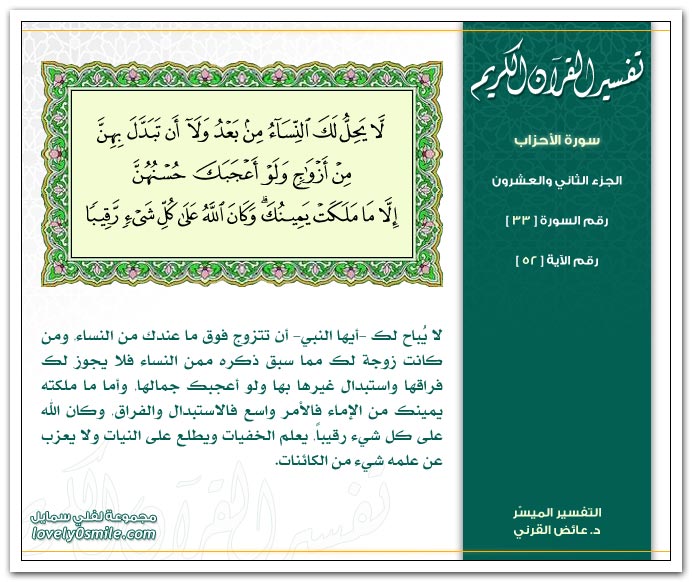 تفسير القرآن الكريم
سورة الأحزاب
الجزء الثاني والعشرون
رقم السورة [ ٣٣ ]
رقم الآية [ ٥٢ ]
لَّا يَحِلُّ لَكَ ٱلنِّسَآءُ مِنۢ بَعْدُ وَلَآ أَن تَبَدَّلَ بِهِنَّ
مِنْ أَزْوَٰجٍ وَلَوْ أَعْجَبَكَ حُسْنُهُنَّ
إِلَّا مَا مَلَكَتْ يَمِينُكَ ۗ وَكَانَ ٱللَّهُ عَلَىٰ كُلِّ شَىْءٍ رَّقِيبًا
لا يُباح لك -أيها النبي- أن تتزوج فوق ما عندك من النساء، ومن
كانت زوجة لك مما سبق ذكره ممن النساء فلا يجوز لك
فراقها واستبدال غيرها بها ولو أعجبك جمالها، وأما ما ملكته
يمينك من الإماء فالأمر واسع فالاستبدال والفراق، وكان الله
على كل شيء رقيباً، يعلم الخفيات ويطلع على النيات ولا يعزب
عن علمه شيء من الكائنات.
التفسير الميسّر
د. عائض القرني
مجموعة لفلي سمايل
lovely0smile.com
تفسير القرآن الكريم